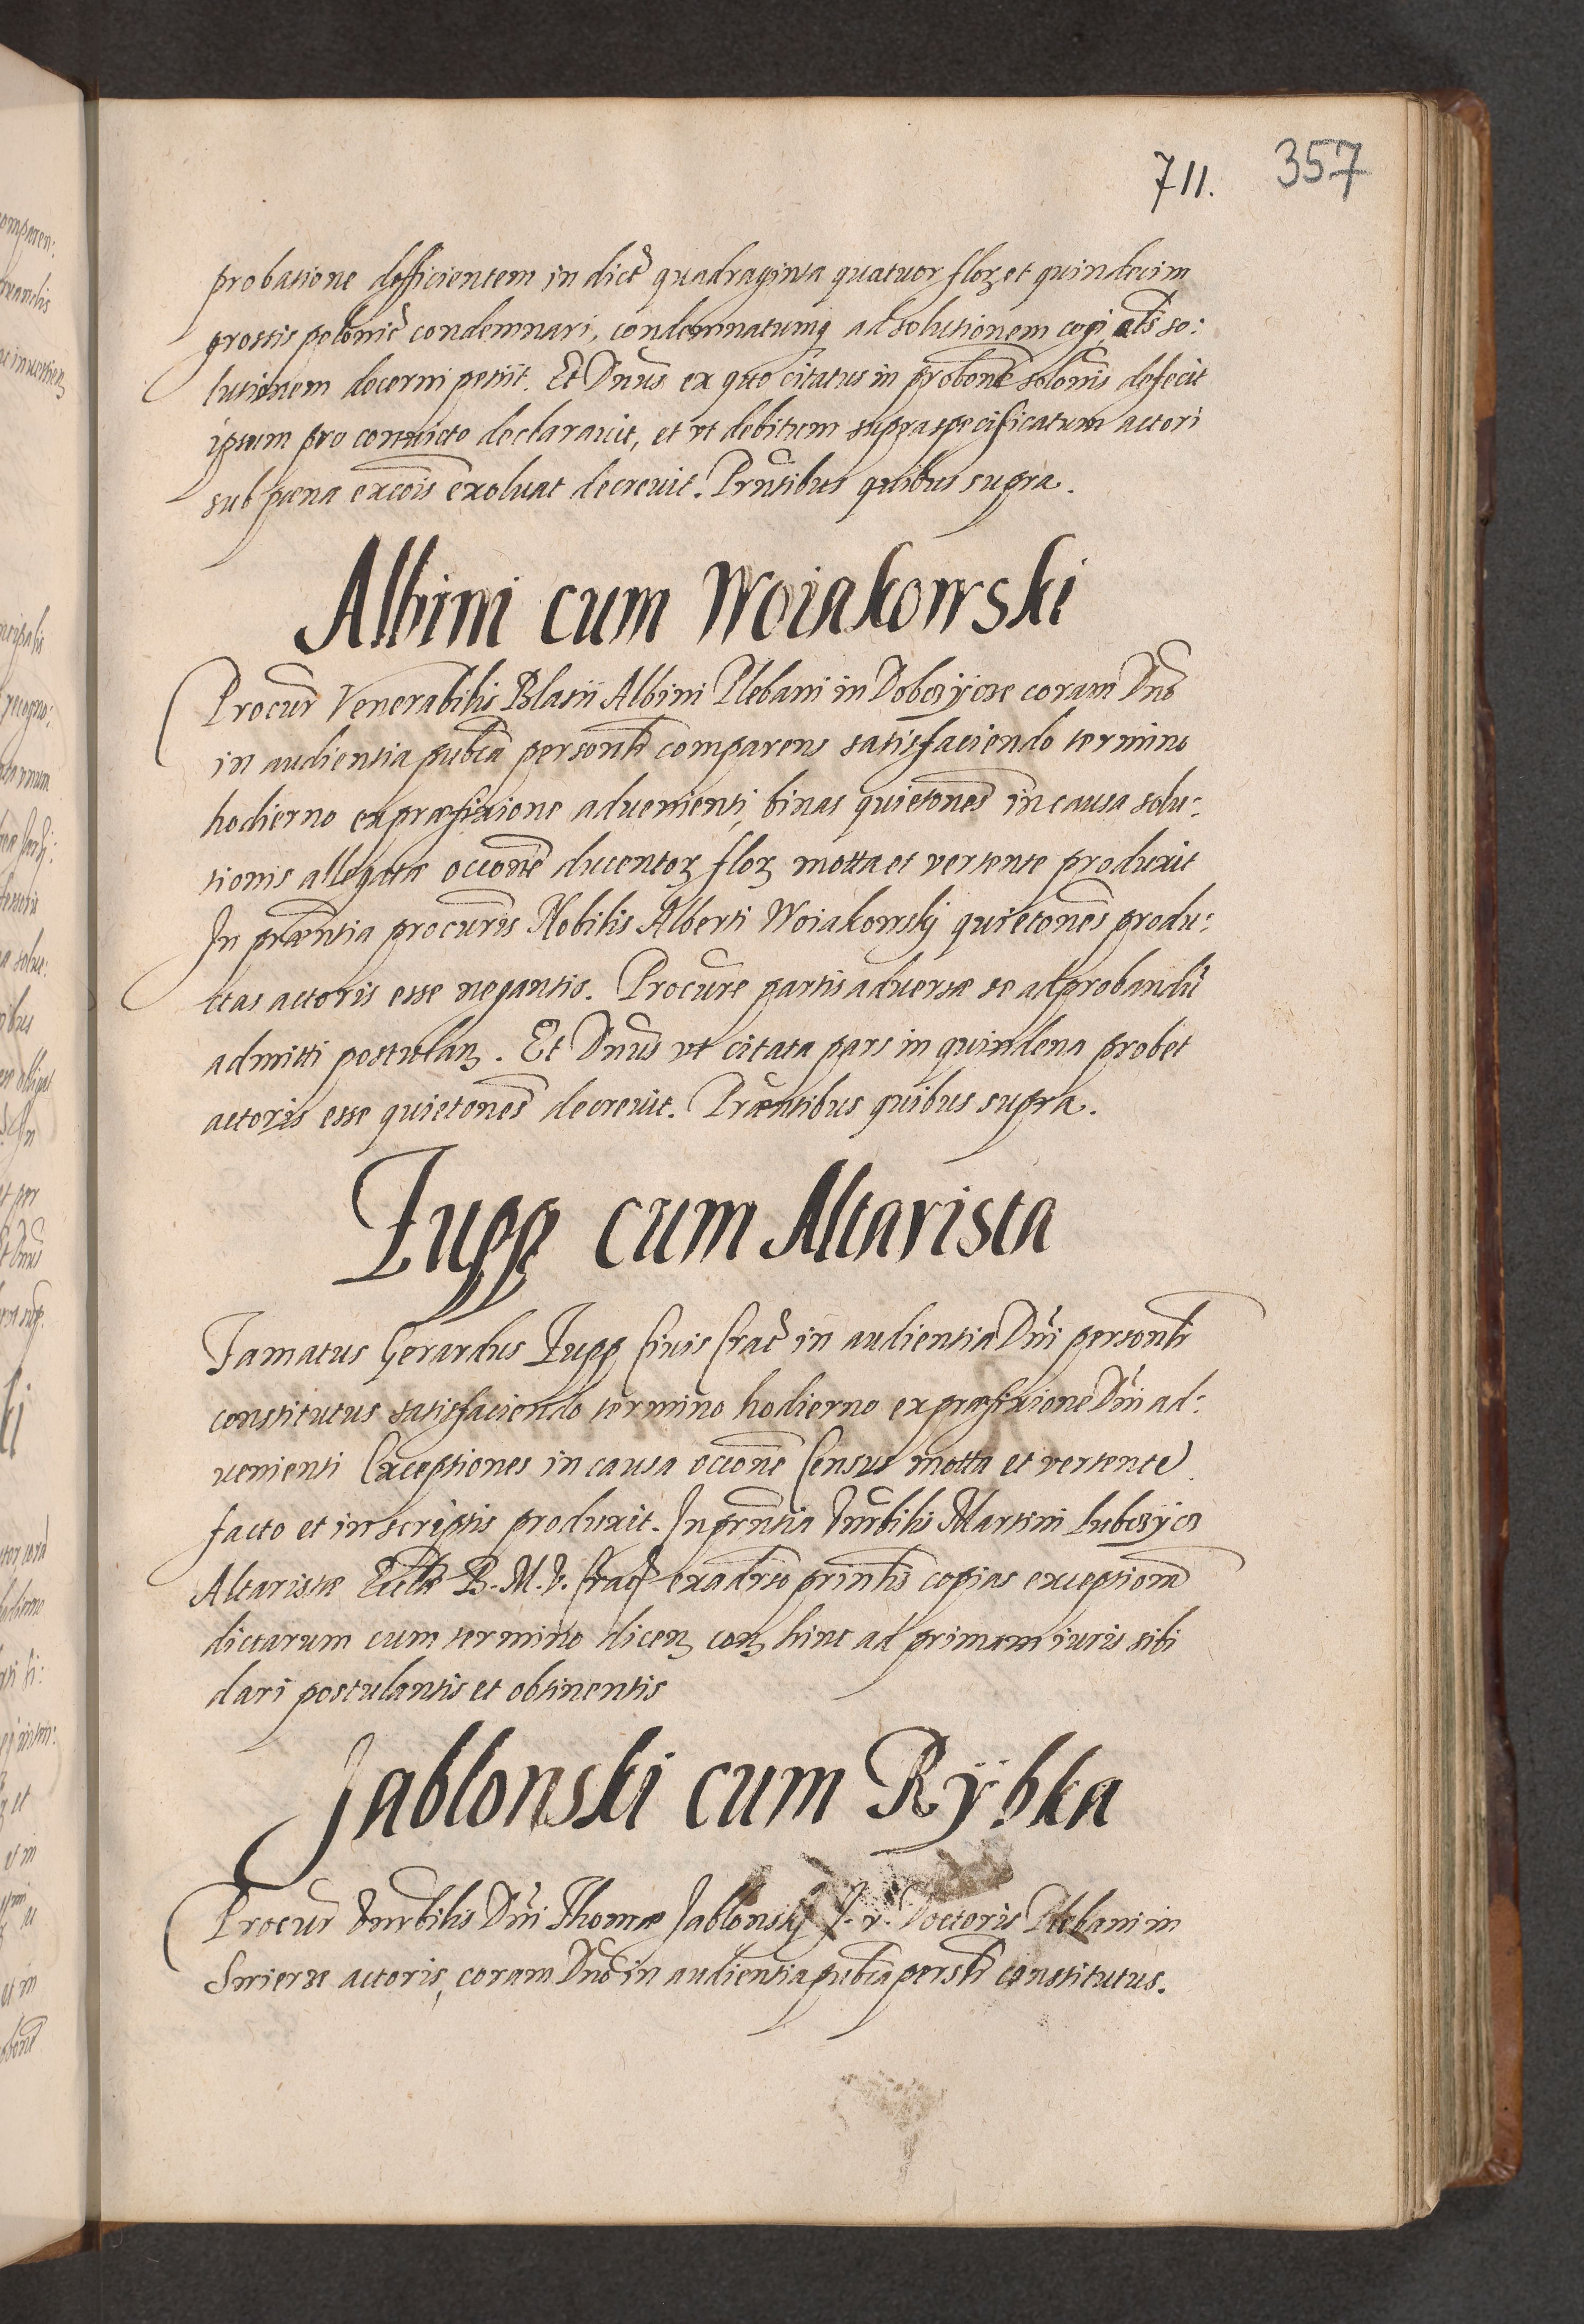 711. 357
probatione defficientem in dict quadraginta quatuor floꝝ et quindecim
grossis polonic condemnari, condemnatumq ad solutionem cogi, als so:
lutionem decerni petiit. Et Dnus ex quo citatus in probone solonis defecit
ipsum pro convicto declarauit, et vt debitum supraspecificatum actori
sub pæna excois exoluat decreuit. Prntibus quibus supra.
Albini cum Woiakowski
Procur Venerabilis Blasii Albini Plebani in Dobczycze coram Dno
in audientia publca personlr comparens satisfaciendo termino
hodierno ex præfixione aduenienti, binas quietones in causa solu:
tionis allegatæ occone ducentoꝝ floꝝ motta et vertente produxit
In præntia procuris Nobilis Alberti Woiakowsky quietones produ:
ctas actoris esse negantis. Procure partis aduersæ se ad probandu
admitti postulanꝫ. Et Dnus vt citata pars in quindena probet
actoris esse quietones decreuit. Præntibus quibus supra.
Zupp cum Altarista
Famatus Gerardus Zupp Ciuis Crac in audientia Dni personlr
constitutus satisfaciendo termino hodierno ex præfixione Dni ad:
uenienti Exceptiones in causa occone Census motta et vertente
facto et in scriptis produxit. In prntia Vnrbilis Martini Lubczycz
Altaristæ Eccliæ B. M. V. Crac ex aduerso prntis copias exceptionu
dictarum cum termino dicenꝫ conꝫ hinc ad primam iuris sibi
dari postulantis et obtinentis
Jablonski cum Rÿbka
Procur Vnrbilis Dni Thomæ Jablonsky J. v. Doctoris Plebani in
Swierze actoris, coram Dno in audientia publca perslr constitutus.